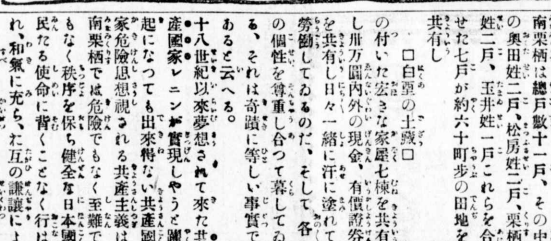 南栗柄は總戸數十一戸、その中
の奥田姓二戸、松房姓二戸、栗柄
姓二戸、玉井姓一戸これらを合
せた七戸が約六十町歩の田地を
共有し
□白堊の土藏□
の付いた宏きな家屋七棟を共有
し卅万圓内外の現金、有價證券
を共有し日々一緒に汗に塗れて
勞働してゐるのだ、そして、各
の個性を尊重し合つて暮してゐ
る、それは奇蹟に等しい事實で
あると云へる。
十八世紀以來夢想されて來た共
產國家レニンが實現しやうと躍
起になつても出來得ない共產國
家危險思想視される共產主義は
南栗柄では危險でもなく至難で
もなく秩序を保ち健全な日本國
民たる使命に背くことなく行は
れ、和氣に充ち、た互の謙讓によ